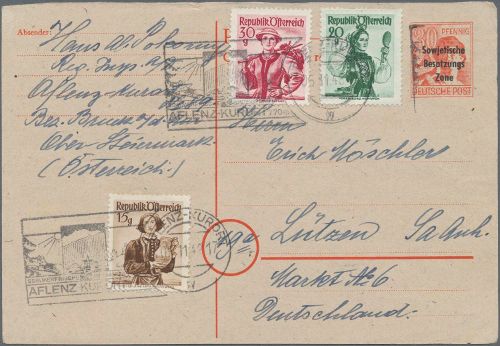 Absender:
Hans
Aflenz-Kurort
Bez. Bruck a/d
Ober-Steiermark
(Österreich)
Republik Österreich
30g
Republik Österreich
20g
30 PFENNIG
Sowjetische
Besatzungs
Zone
DEUTSCHE POST
AFLENZ-KURORT
Herrn
Erich Möschler
Lützen Sa Anh.
Markt № 6
Deutschland.
Republik Österreich
15g
AFLENZ-KURORT
AFLENZ KURORT